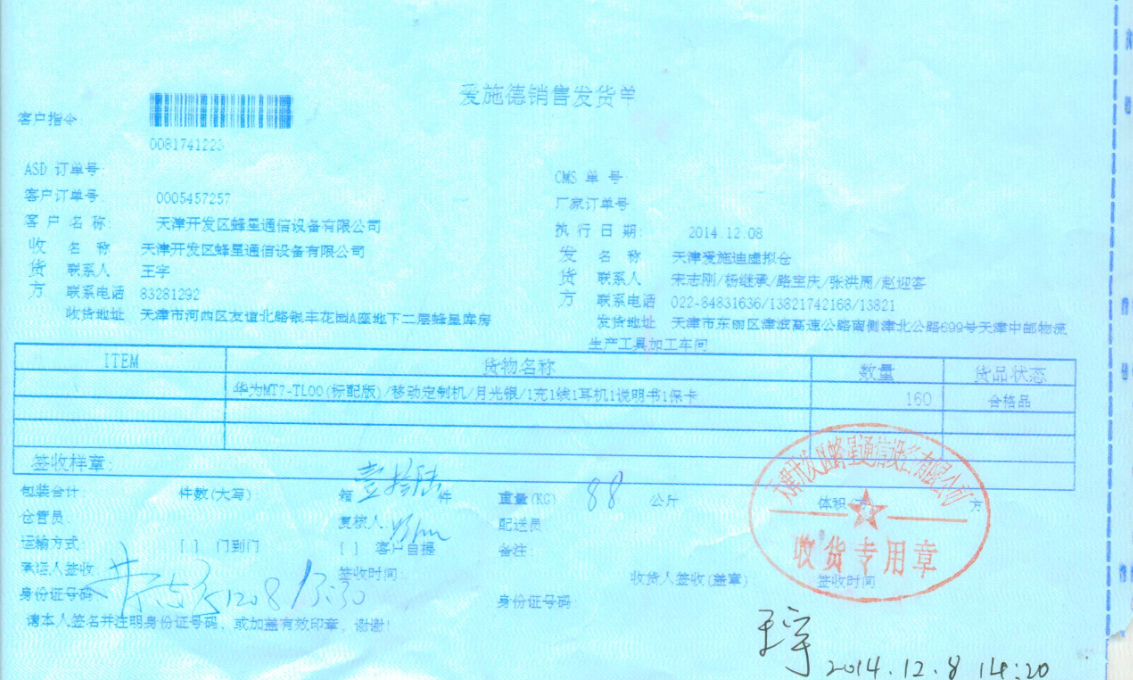 爱施德销售发货单
客户指令:
0081741223
ASD 订单号:
客户订单号: 0005457257
客户名称: 天津开发区蜂星通信设备有限公司
收货方
名称 天津开发区蜂星通信设备有限公司
联系人 王宇
联系电话 83281292
收货地址 天津市河西区友谊北路银丰花园A座地下二层蜂星库房
CMS 单号:
厂家订单号
执行日期: 2014.12.08
发货方
名称 天津爱施迪虚拟仓
联系人 宋志刚/杨继承/路宝庆/张洪周/赵迎客
联系电话 022-84831636/13821742168/13821
发货地址 天津市东丽区津滨高速公路南侧津北公路699号天津中邮物流
生产工具加工车间
ITEM 货物名称 数量 货品状态
华为MT7-TL00(标配版)/移动定制机/月光银/1充1线1耳机1说明书1保卡 160 合格品
签收样章:
包装合计: 件数(大写) 箱 壹拾陆 件 重量(KG) 88 公斤 体积 方
仓管员: 复核人: 配送员:
运输方式: [ ] 门到门 [ ] 客户自提 备注:
承运人签收: 签收时间: 收货人签收(盖章) 签收时间
1208 13:30
身份证号码: 身份证号码:
请本人签名并注明身份证号码、或加盖有效印章、谢谢!
收货专用章
王宇
2014.12.8 14:20